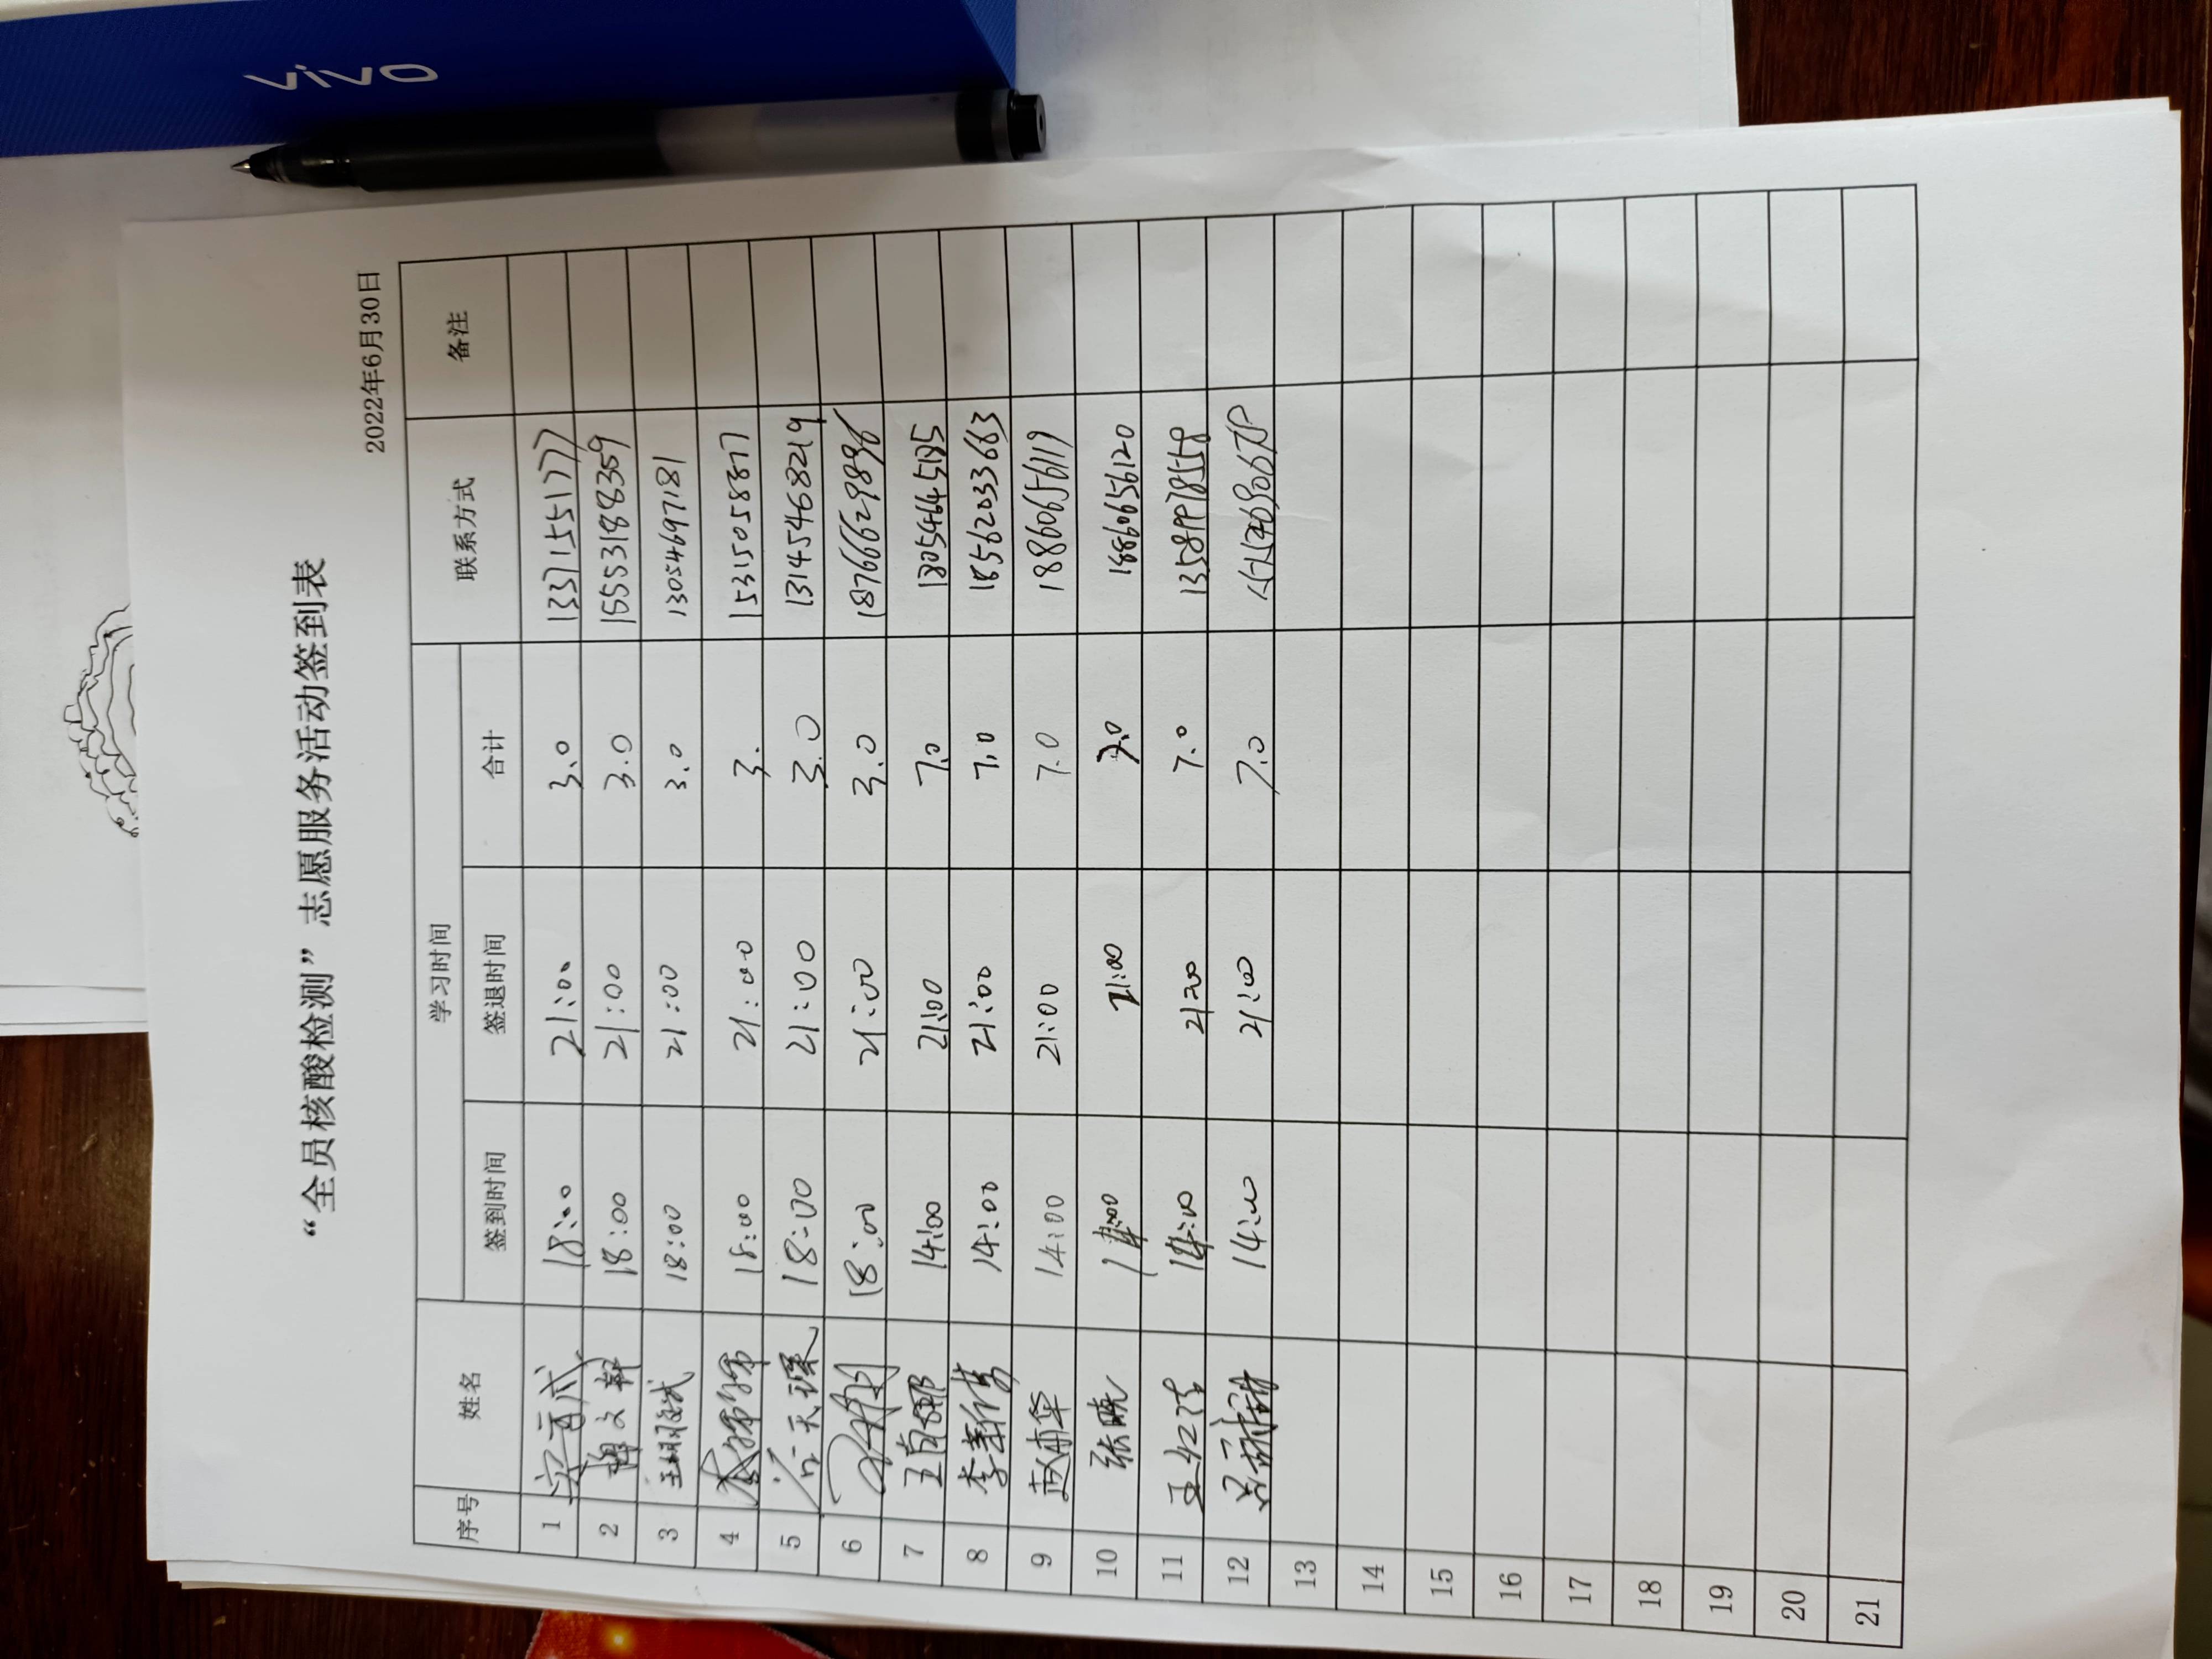 vivo
“全员核酸检测”志愿服务活动签到表
2022年6月30日
序号 姓名 学习时间 联系方式 备注
签到时间 签退时间 合计
1 18:00 21:00 3.0 13371551777
2 18:00 21:00 3.0 15553188359
3 18:00 21:00 3.0 13054697181
4 18:00 21:00 3. 15315058877
5 18:00 21:00 3.0 13145468219
6 18:00 21:00 3.0 18766629896
7 14:00 21:00 7.0
8 李新伟 14:00 21:00 7.0 18562033663
9 赵雨华 14:00 21:00 7.0 18860656119
10 张晓 14:00 21:00 7.0 18860656120
11 14:00 21:00 7.0 13589978558
12 14:00 21:00 7.0
13
14
15
16
17
18
19
20
21